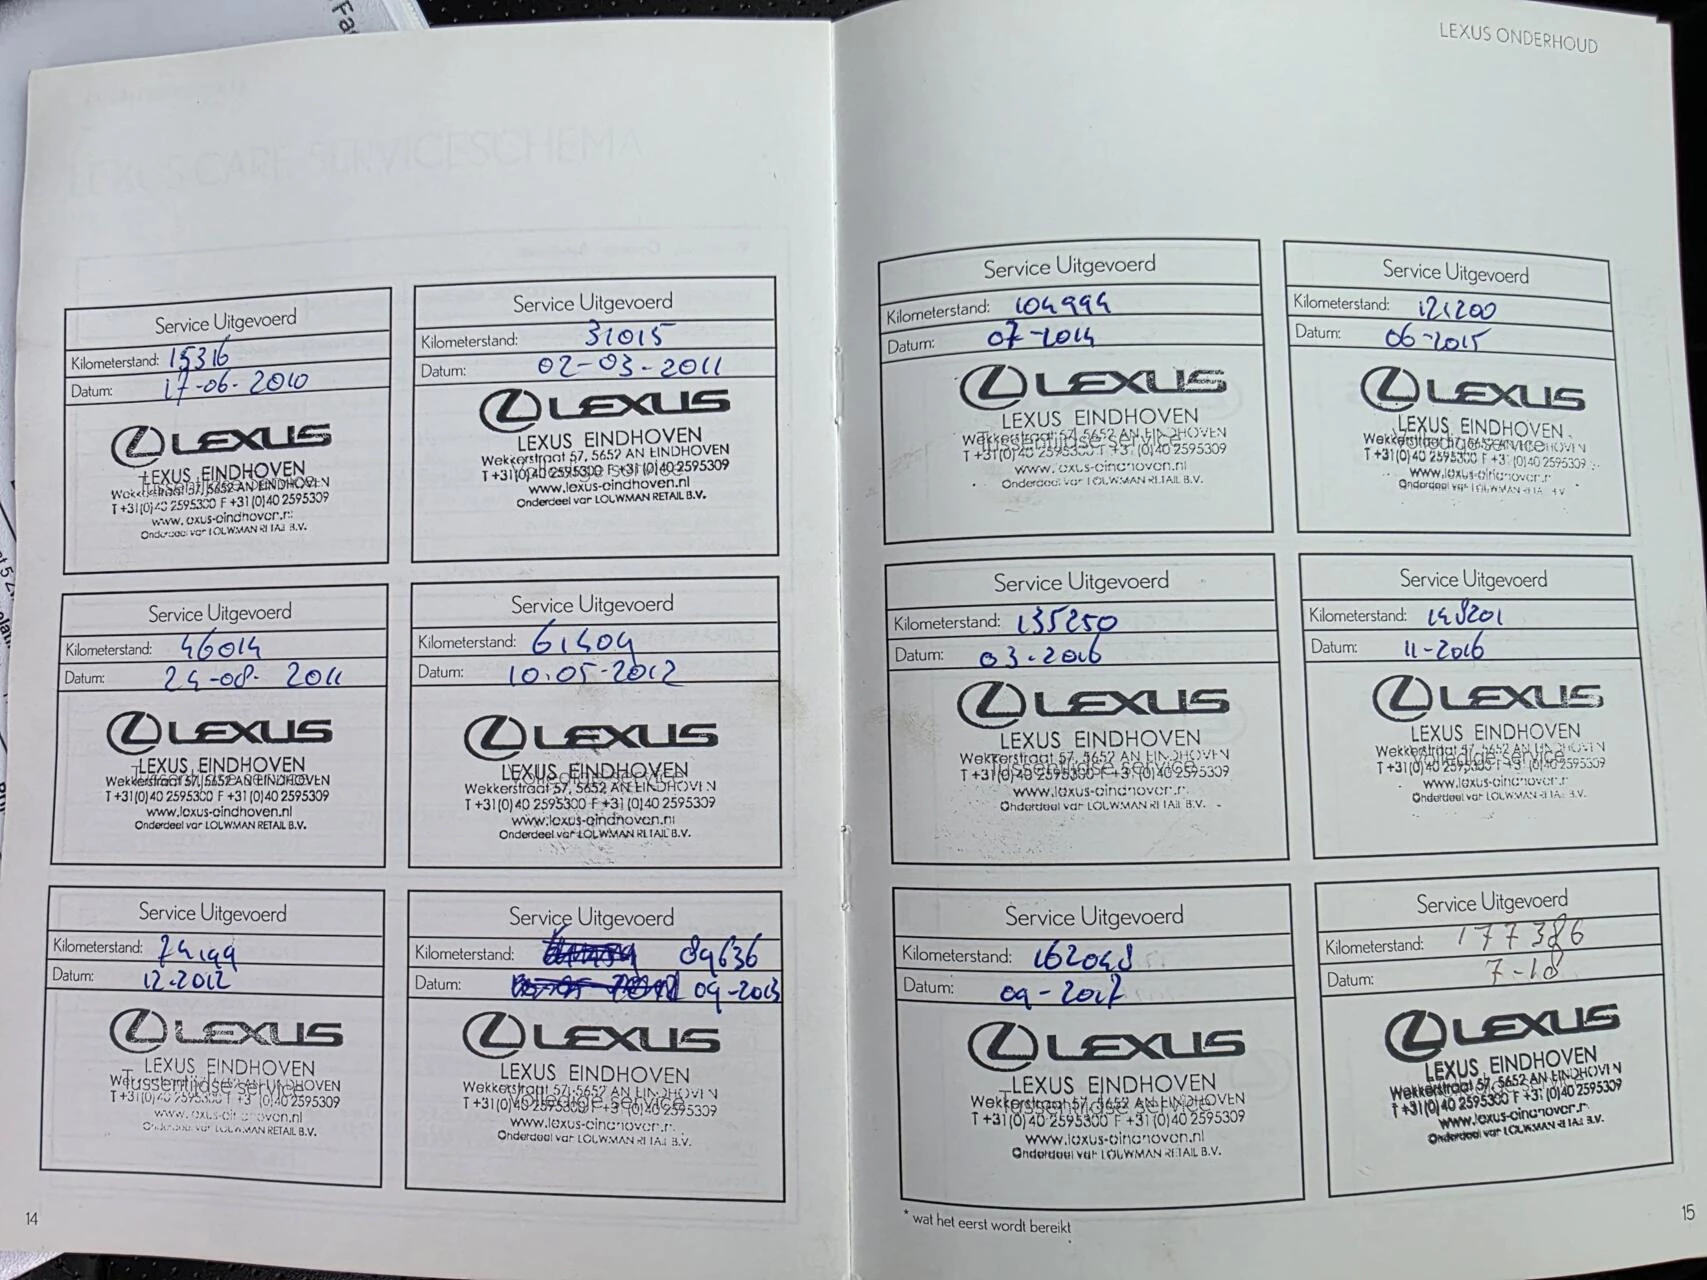 LEXUS ONDERHOUD
LEXUS CARE SERVICESCHEMA
Service Uitgevoerd
Kilometerstand: 15316
Datum: 17-06-2010
LEXUS
LEXUS EINDHOVEN
Wekkerstraat 57, 5652 AN EINDHOVEN
T +31(0)40 2595300 F +31(0)40 2595309
www.lexus-eindhoven.nl
Onderdeel van LOUWMAN RETAIL B.V.
Service Uitgevoerd
Kilometerstand: 31015
Datum: 02-03-2011
LEXUS
LEXUS EINDHOVEN
Wekkerstraat 57, 5652 AN EINDHOVEN
Volledige service
T +31(0)40 2595300 F +31(0)40 2595309
www.lexus-eindhoven.nl
Onderdeel van LOUWMAN RETAIL B.V.
Service Uitgevoerd
Kilometerstand: 46014
Datum: 24-08-2011
LEXUS
LEXUS EINDHOVEN
Tussentijdse service
Wekkerstraat 57, 5652 AN EINDHOVEN
T +31(0)40 2595300 F +31(0)40 2595309
www.lexus-eindhoven.nl
Onderdeel van LOUWMAN RETAIL B.V.
Service Uitgevoerd
Kilometerstand: 61404
Datum: 10-05-2012
LEXUS
LEXUS EINDHOVEN
Volledige service
Wekkerstraat 57, 5652 AN EINDHOVEN
T +31(0)40 2595300 F +31(0)40 2595309
www.lexus-eindhoven.nl
Onderdeel van LOUWMAN RETAIL B.V.
Service Uitgevoerd
Kilometerstand: 74199
Datum: 12-2012
LEXUS
LEXUS EINDHOVEN
Wekkerstraat 57, 5652 AN EINDHOVEN
Tussentijdse service
T +31(0)40 2595300 F +31(0)40 2595309
www.lexus-eindhoven.nl
Onderdeel van LOUWMAN RETAIL B.V.
Service Uitgevoerd
Kilometerstand: 89636
Datum: 09-2013
LEXUS
LEXUS EINDHOVEN
Wekkerstraat 57, 5652 AN EINDHOVEN
Volledige service
T +31(0)40 2595300 F +31(0)40 2595309
www.lexus-eindhoven.nl
Onderdeel van LOUWMAN RETAIL B.V.
14
Service Uitgevoerd
Kilometerstand: 104994
Datum: 07-2014
LEXUS
LEXUS EINDHOVEN
Wekkerstraat 57, 5652 AN EINDHOVEN
Tussentijdse service
T +31(0)40 2595300 F +31(0)40 2595309
www.lexus-eindhoven.nl
Onderdeel van LOUWMAN RETAIL B.V.
Service Uitgevoerd
Kilometerstand: 121200
Datum: 06-2015
LEXUS
LEXUS EINDHOVEN
Wekkerstraat 57, 5652 AN EINDHOVEN
Volledige service
T +31(0)40 2595300 F +31(0)40 2595309
www.lexus-eindhoven.nl
Onderdeel van LOUWMAN RETAIL B.V.
Service Uitgevoerd
Kilometerstand: 135250
Datum: 03-2016
LEXUS
LEXUS EINDHOVEN
Wekkerstraat 57, 5652 AN EINDHOVEN
Tussentijdse service
T +31(0)40 2595300 F +31(0)40 2595309
www.lexus-eindhoven.nl
Onderdeel van LOUWMAN RETAIL B.V.
Service Uitgevoerd
Kilometerstand: 148201
Datum: 11-2016
LEXUS
LEXUS EINDHOVEN
Wekkerstraat 57, 5652 AN EINDHOVEN
Volledige service
T +31(0)40 2595300 F +31(0)40 2595309
www.lexus-eindhoven.nl
Onderdeel van LOUWMAN RETAIL B.V.
Service Uitgevoerd
Kilometerstand: 162048
Datum: 09-2017
LEXUS
LEXUS EINDHOVEN
Wekkerstraat 57, 5652 AN EINDHOVEN
Tussentijdse service
T +31(0)40 2595300 F +31(0)40 2595309
www.lexus-eindhoven.nl
Onderdeel van LOUWMAN RETAIL B.V.
Service Uitgevoerd
Kilometerstand: 177386
Datum: 7-18
LEXUS
LEXUS EINDHOVEN
Wekkerstraat 57, 5652 AN EINDHOVEN
T +31(0)40 2595300 F +31(0)40 2595309
www.lexus-eindhoven.nl
Onderdeel van LOUWMAN RETAIL B.V.
* wat het eerst wordt bereikt
15